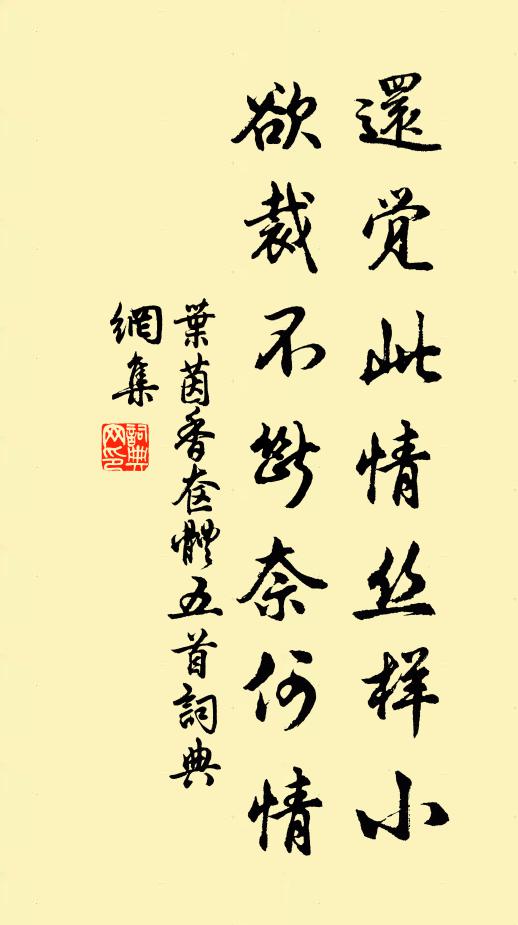 還觉此情丝样小
欲裁不断奈何情
葉茵香奩體五首詞典
網集
詞典
网印